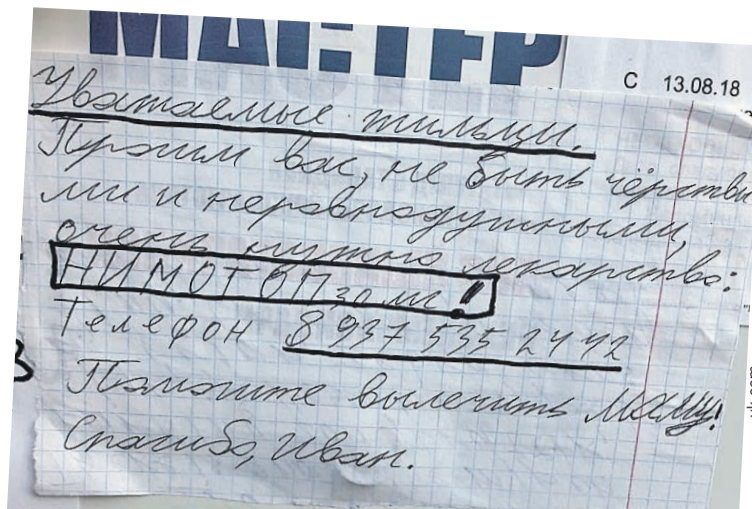 МАСТЕР
С 13.08.18
Уважаемые жильцы.
Просим вас, не быть чёрствы
ми и неравнодушными,
очень нужно лекарство:
НИМОТОП 30 мг!
Телефон 8 937 535 24 42
Помогите вылечить Маму!
Спасибо, Иван.